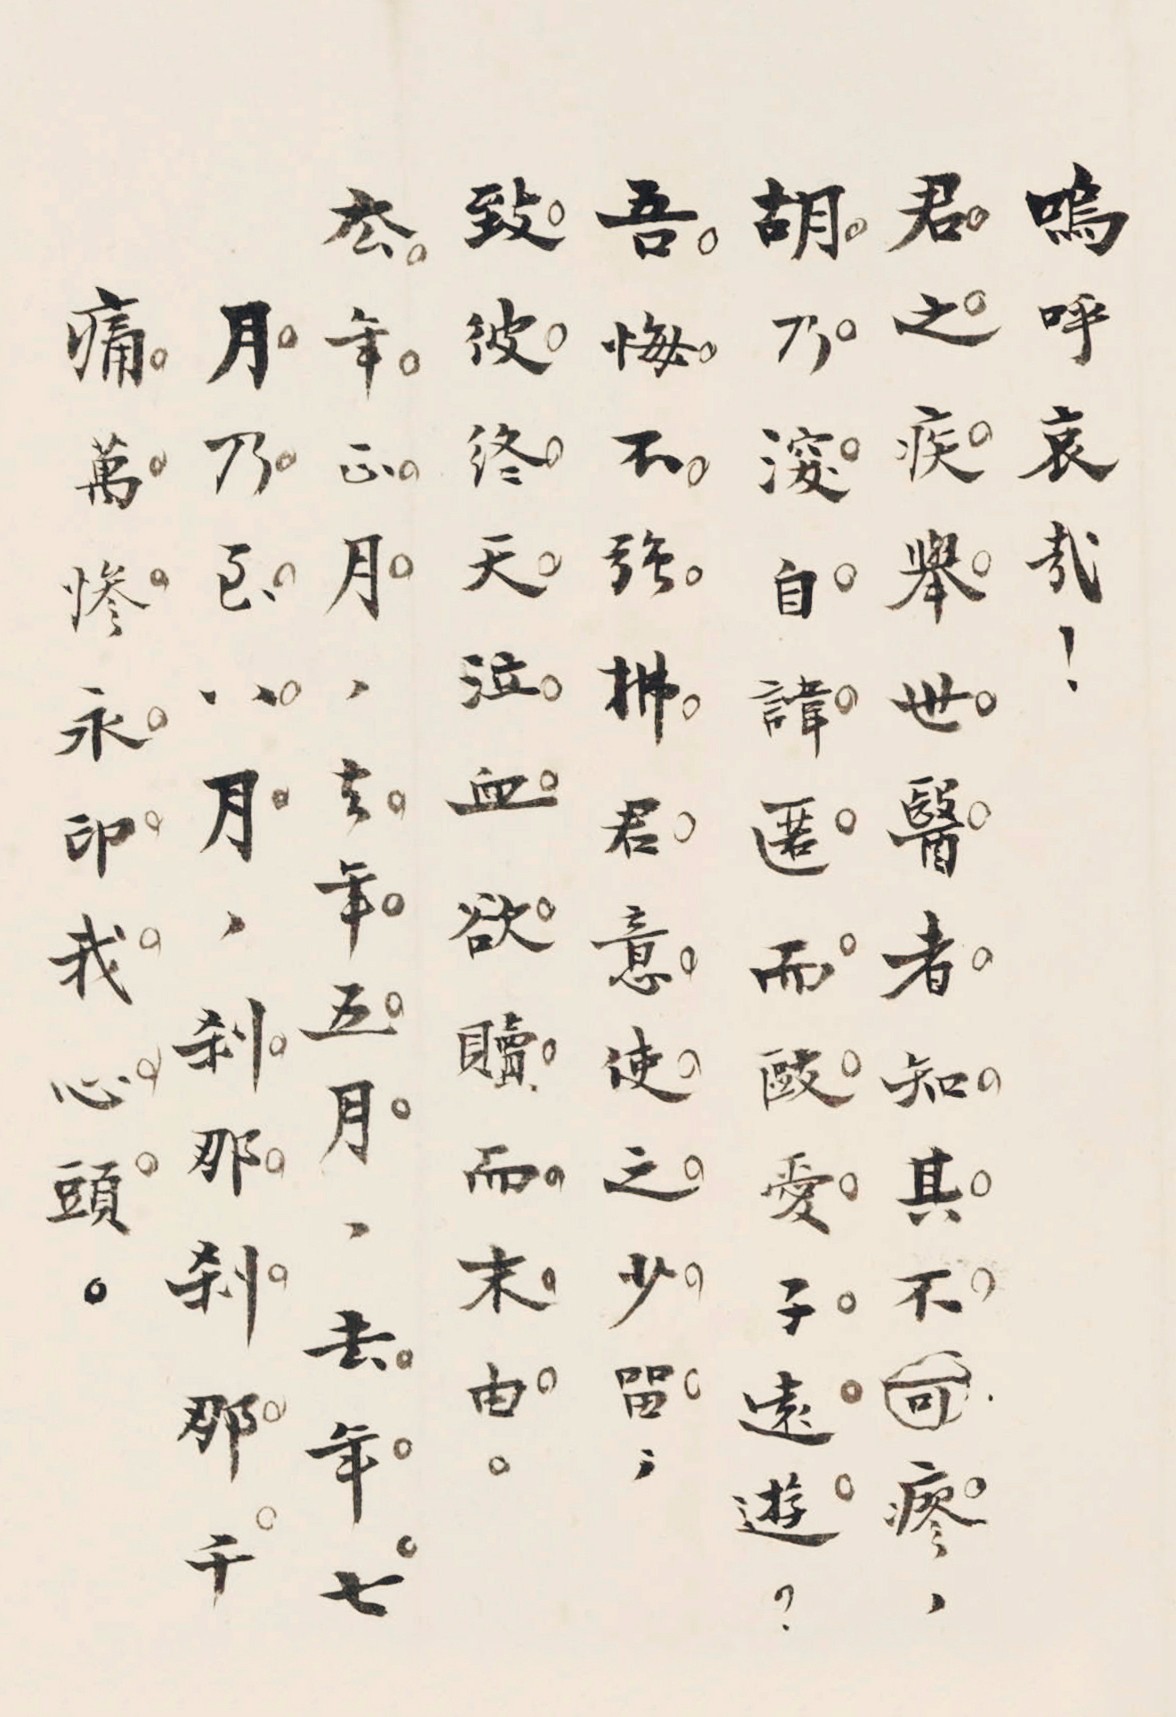 嗚呼哀哉!
君之疾舉世醫者知其不可瘳,
胡乃深自諱匿而敺愛子遠遊?
吾悔不強拂君意使之少留,
致彼終天泣血欲贖而末由。
厺年正月,去年五月,去年七
月乃至八月,刹那刹那千
痛萬慘永印我心頭。